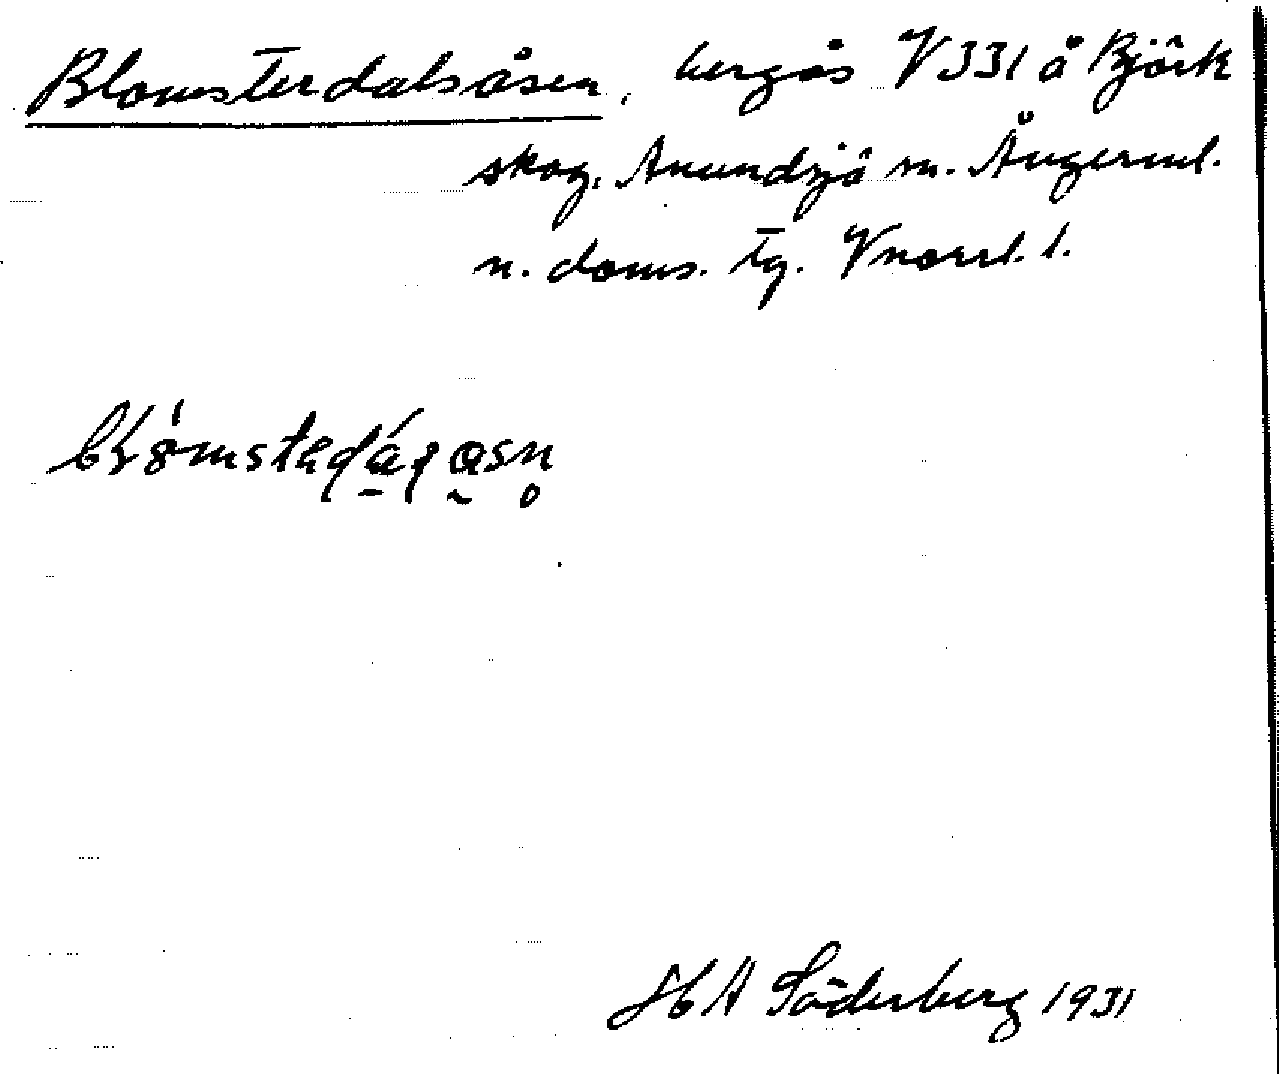 Blomsterdalsåsen, bergås V331 å Björk
skog, Anundsjö sn. Ångerml.
n. doms. tg. Vnorrl. l.
HA Söderberg 1931